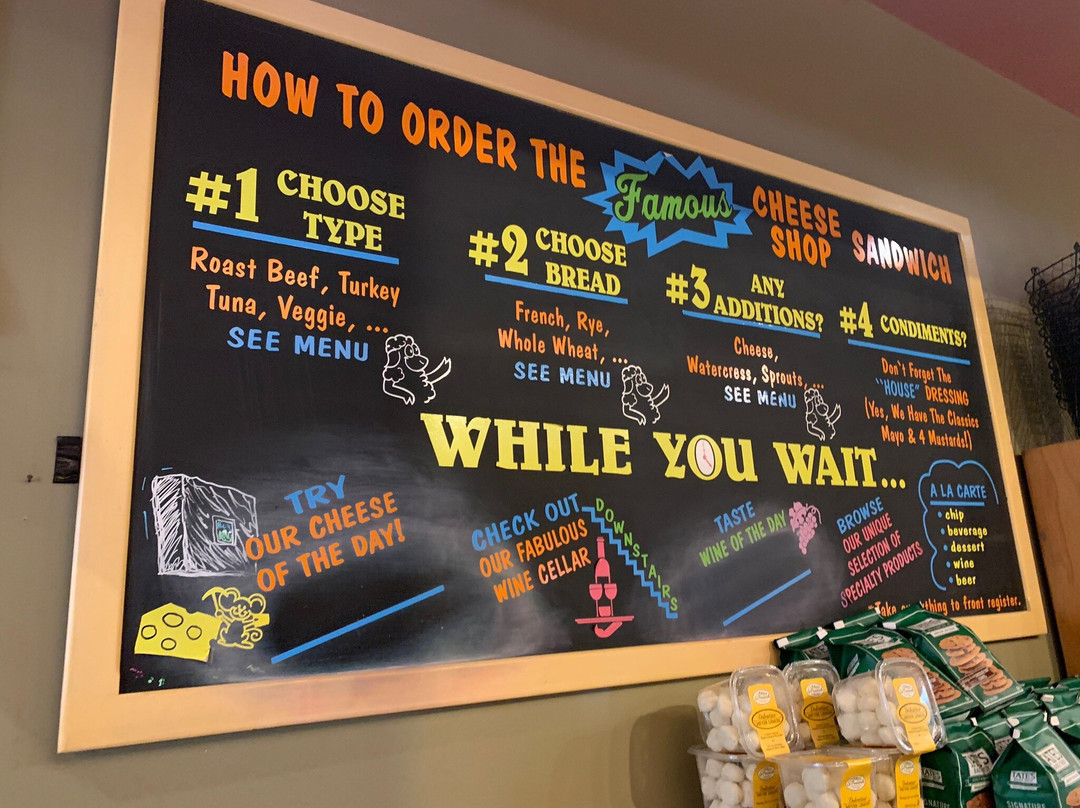 HOW TO ORDER THE Famous CHEESE SHOP SANDWICH
#1 CHOOSE TYPE
Roast Beef, Turkey
Tuna, Veggie, ...
SEE MENU
#2 CHOOSE BREAD
French, Rye,
Whole Wheat, ...
SEE MENU
#3 ANY ADDITIONS?
Cheese,
Watercress, Sprouts, ...
SEE MENU
#4 CONDIMENTS?
Don't Forget The
"HOUSE" DRESSING
(Yes, We Have The Classics
Mayo & 4 Mustards!)
WHILE YOU WAIT...
TRY
OUR CHEESE
OF THE DAY!
CHECK OUT
OUR FABULOUS
WINE CELLAR
DOWNSTAIRS
TASTE
WINE OF THE DAY
BROWSE
OUR UNIQUE
SELECTION OF
SPECIALTY PRODUCTS
A LA CARTE
• chip
• beverage
• dessert
• wine
• beer
to front register.
TATE'S
SIGNATURE